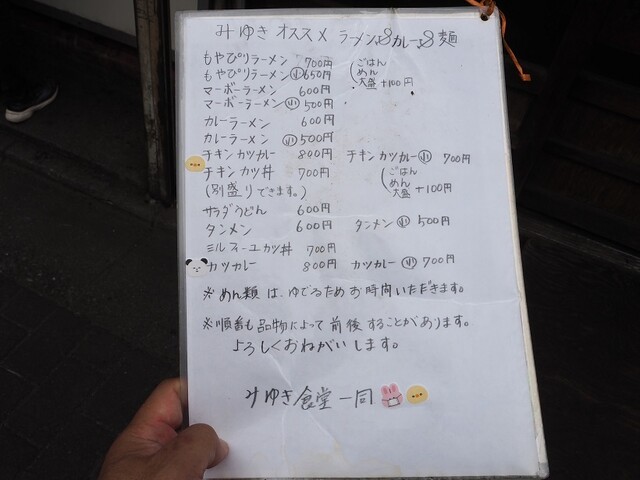 みゆきオススメ ラーメン&カレー&麺
もやぴりラーメン 700円
もやぴりラーメン 小 650円
(ごはん
めん
大盛 +100円
マーボーラーメン 600円
マーボーラーメン 小 500円
カレーラーメン 600円
カレーラーメン 小 500円
チキンカツカレー 800円 チキンカツカレー 小 700円
チキンカツ丼 700円
(ごはん
めん
大盛 +100円
(別盛りできます。)
サラダうどん 600円
タンメン 600円 タンメン 小 500円
ミルフィーユカツ丼 700円
カツカレー 800円 カツカレー 小 700円
※めん類は、ゆでるためお時間いただきます。
※順番も品物によって前後することがあります。
よろしくおねがいします。
みゆき食堂一同